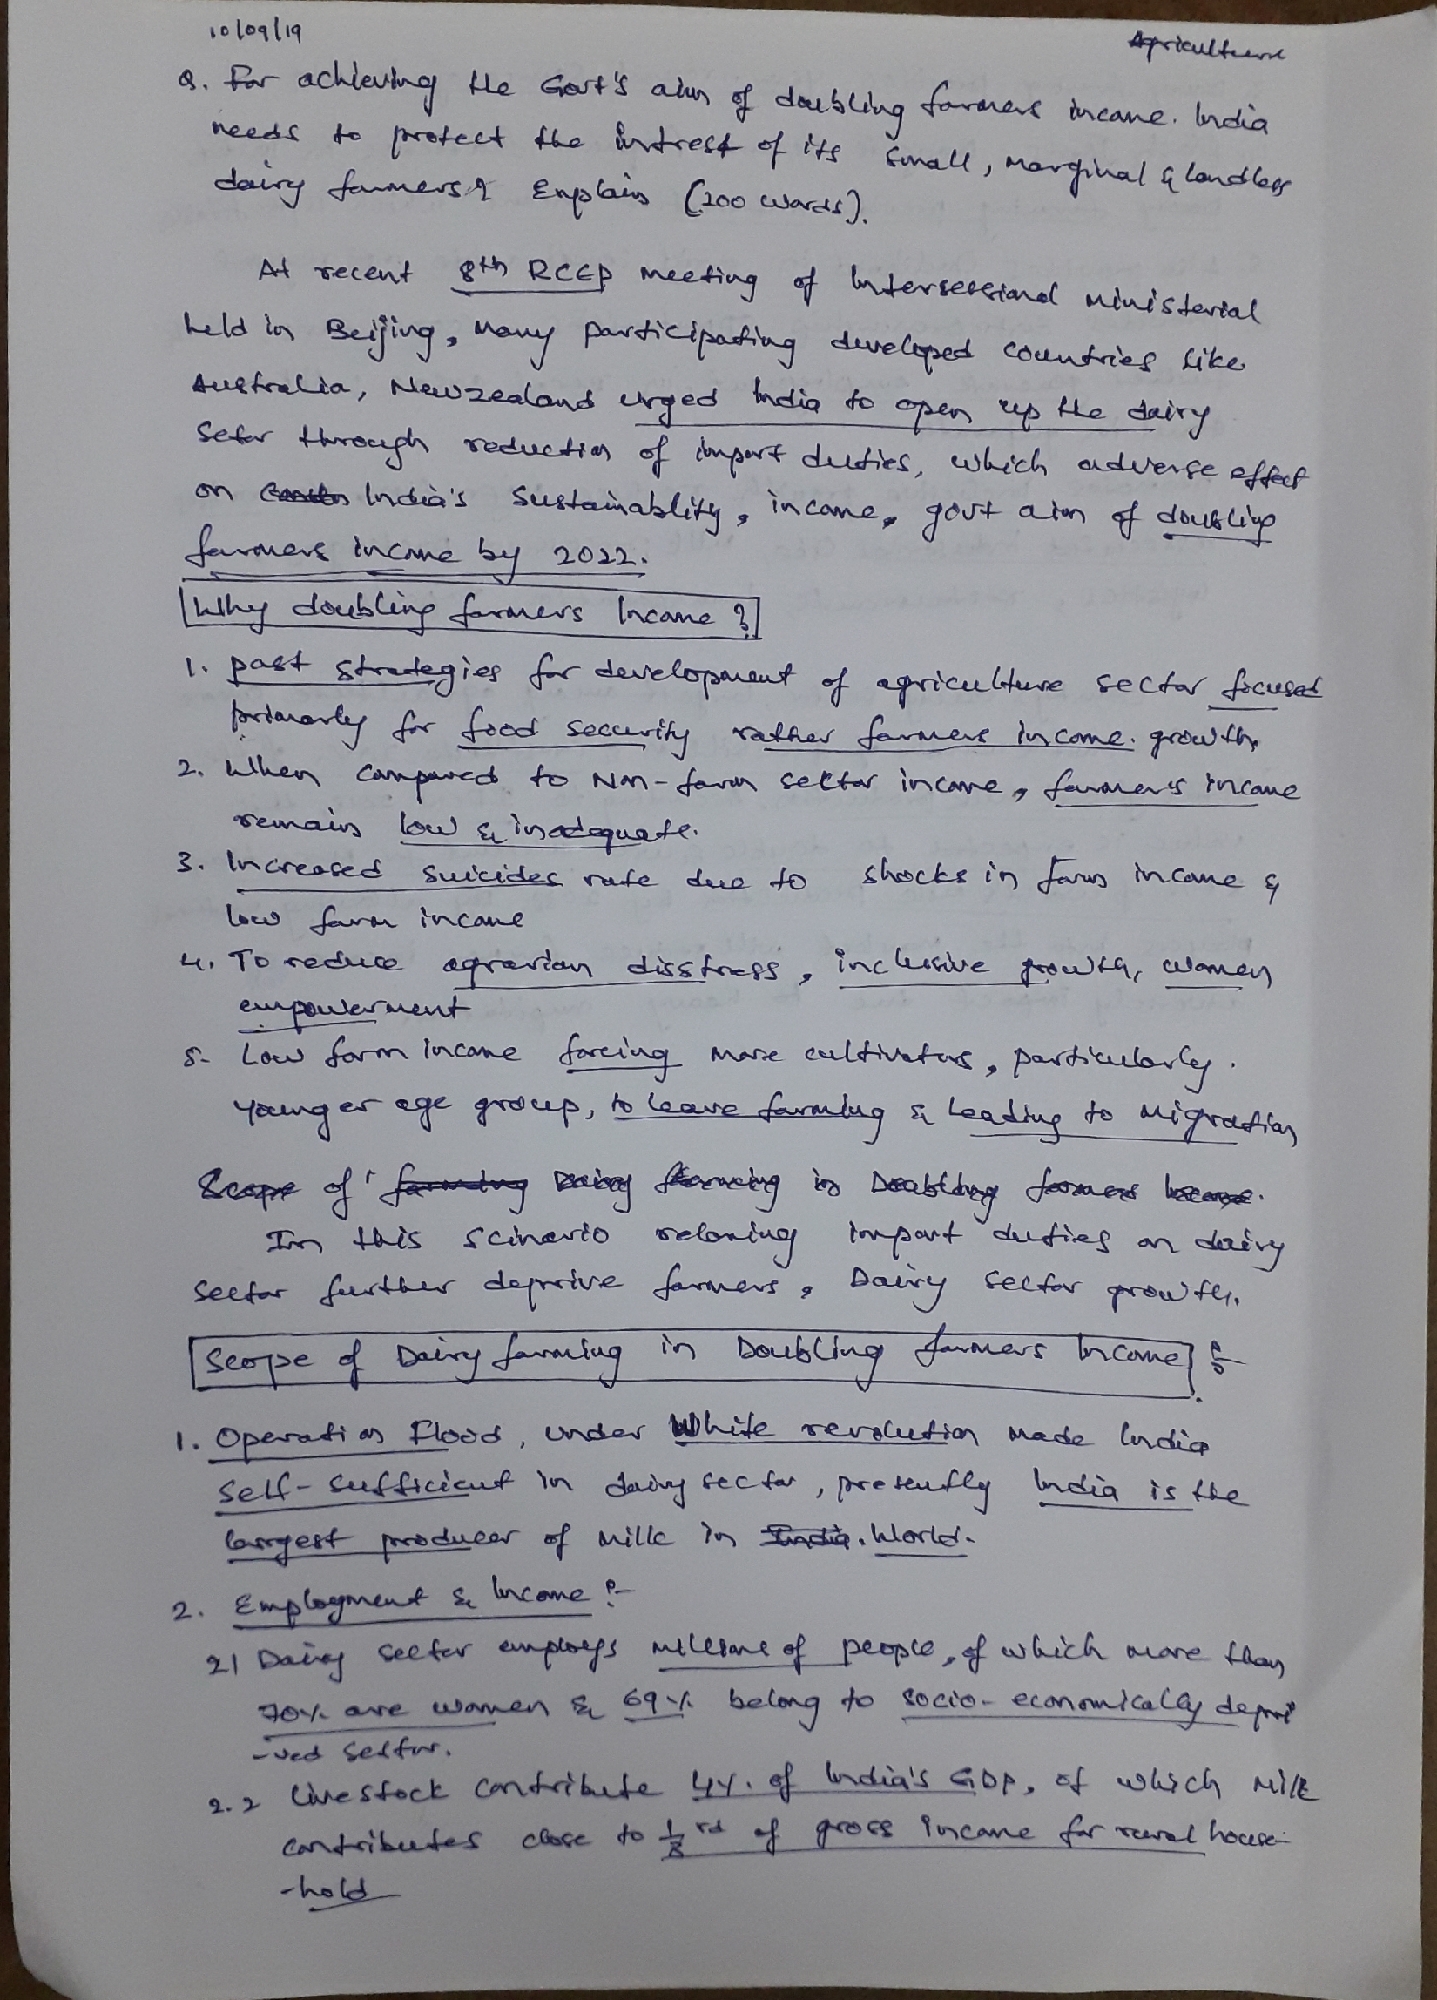 10/09/19
Agriculture
Q. For achieving the Govt's aim of doubling farmers income. India
needs to protect the intrest of its small, marginal & landless
dairy farmers? Explain (200 words).
At recent 8th RCEP meeting of Intersessional Ministerial
held in Beijing, many participating developed countries like
Australia, Newzealand urged India to open up the dairy
setor through reduction of import duties, which adverse effect
on India's sustainablity, income, govt aim of doubling
farmers income by 2022.
Why doubling farmers Income ?
1. past strategies for development of agriculture sector focused
primarly for food security rather farmers income growth,
2. When compared to Non-farm sector income, farmer's income
remain low & inadequate.
3. Increased suicides rate due to shocks in farm income &
low farm income
4. To reduce agrarian disstress, inclusive growth, women
empowerment
5. Low farm income forcing more cultivators, particularly
younger age group, to leave farming & leading to Migration
Scope of farming Dairy farming in Doubling farmers Income.
In this scinario relaxing import duties on dairy
sector further deprive farmers, Dairy sector growth.
Scope of Dairy farming in Doubling farmers Income :-
1. Operation Flood, under White revolution made India
Self-sufficient in dairy sector, presently India is the
largest producer of milk in India. World.
2. Employment & Income :-
21 Dairy sector employs millions of people, of which more than
70% are women & 69% belong to socio-economically depri
-ved sector.
2.2 Livestock contribute 4%. of India's GDP, of which milk
contributes close to 1/3 rd of gross income for rural house-
-hold